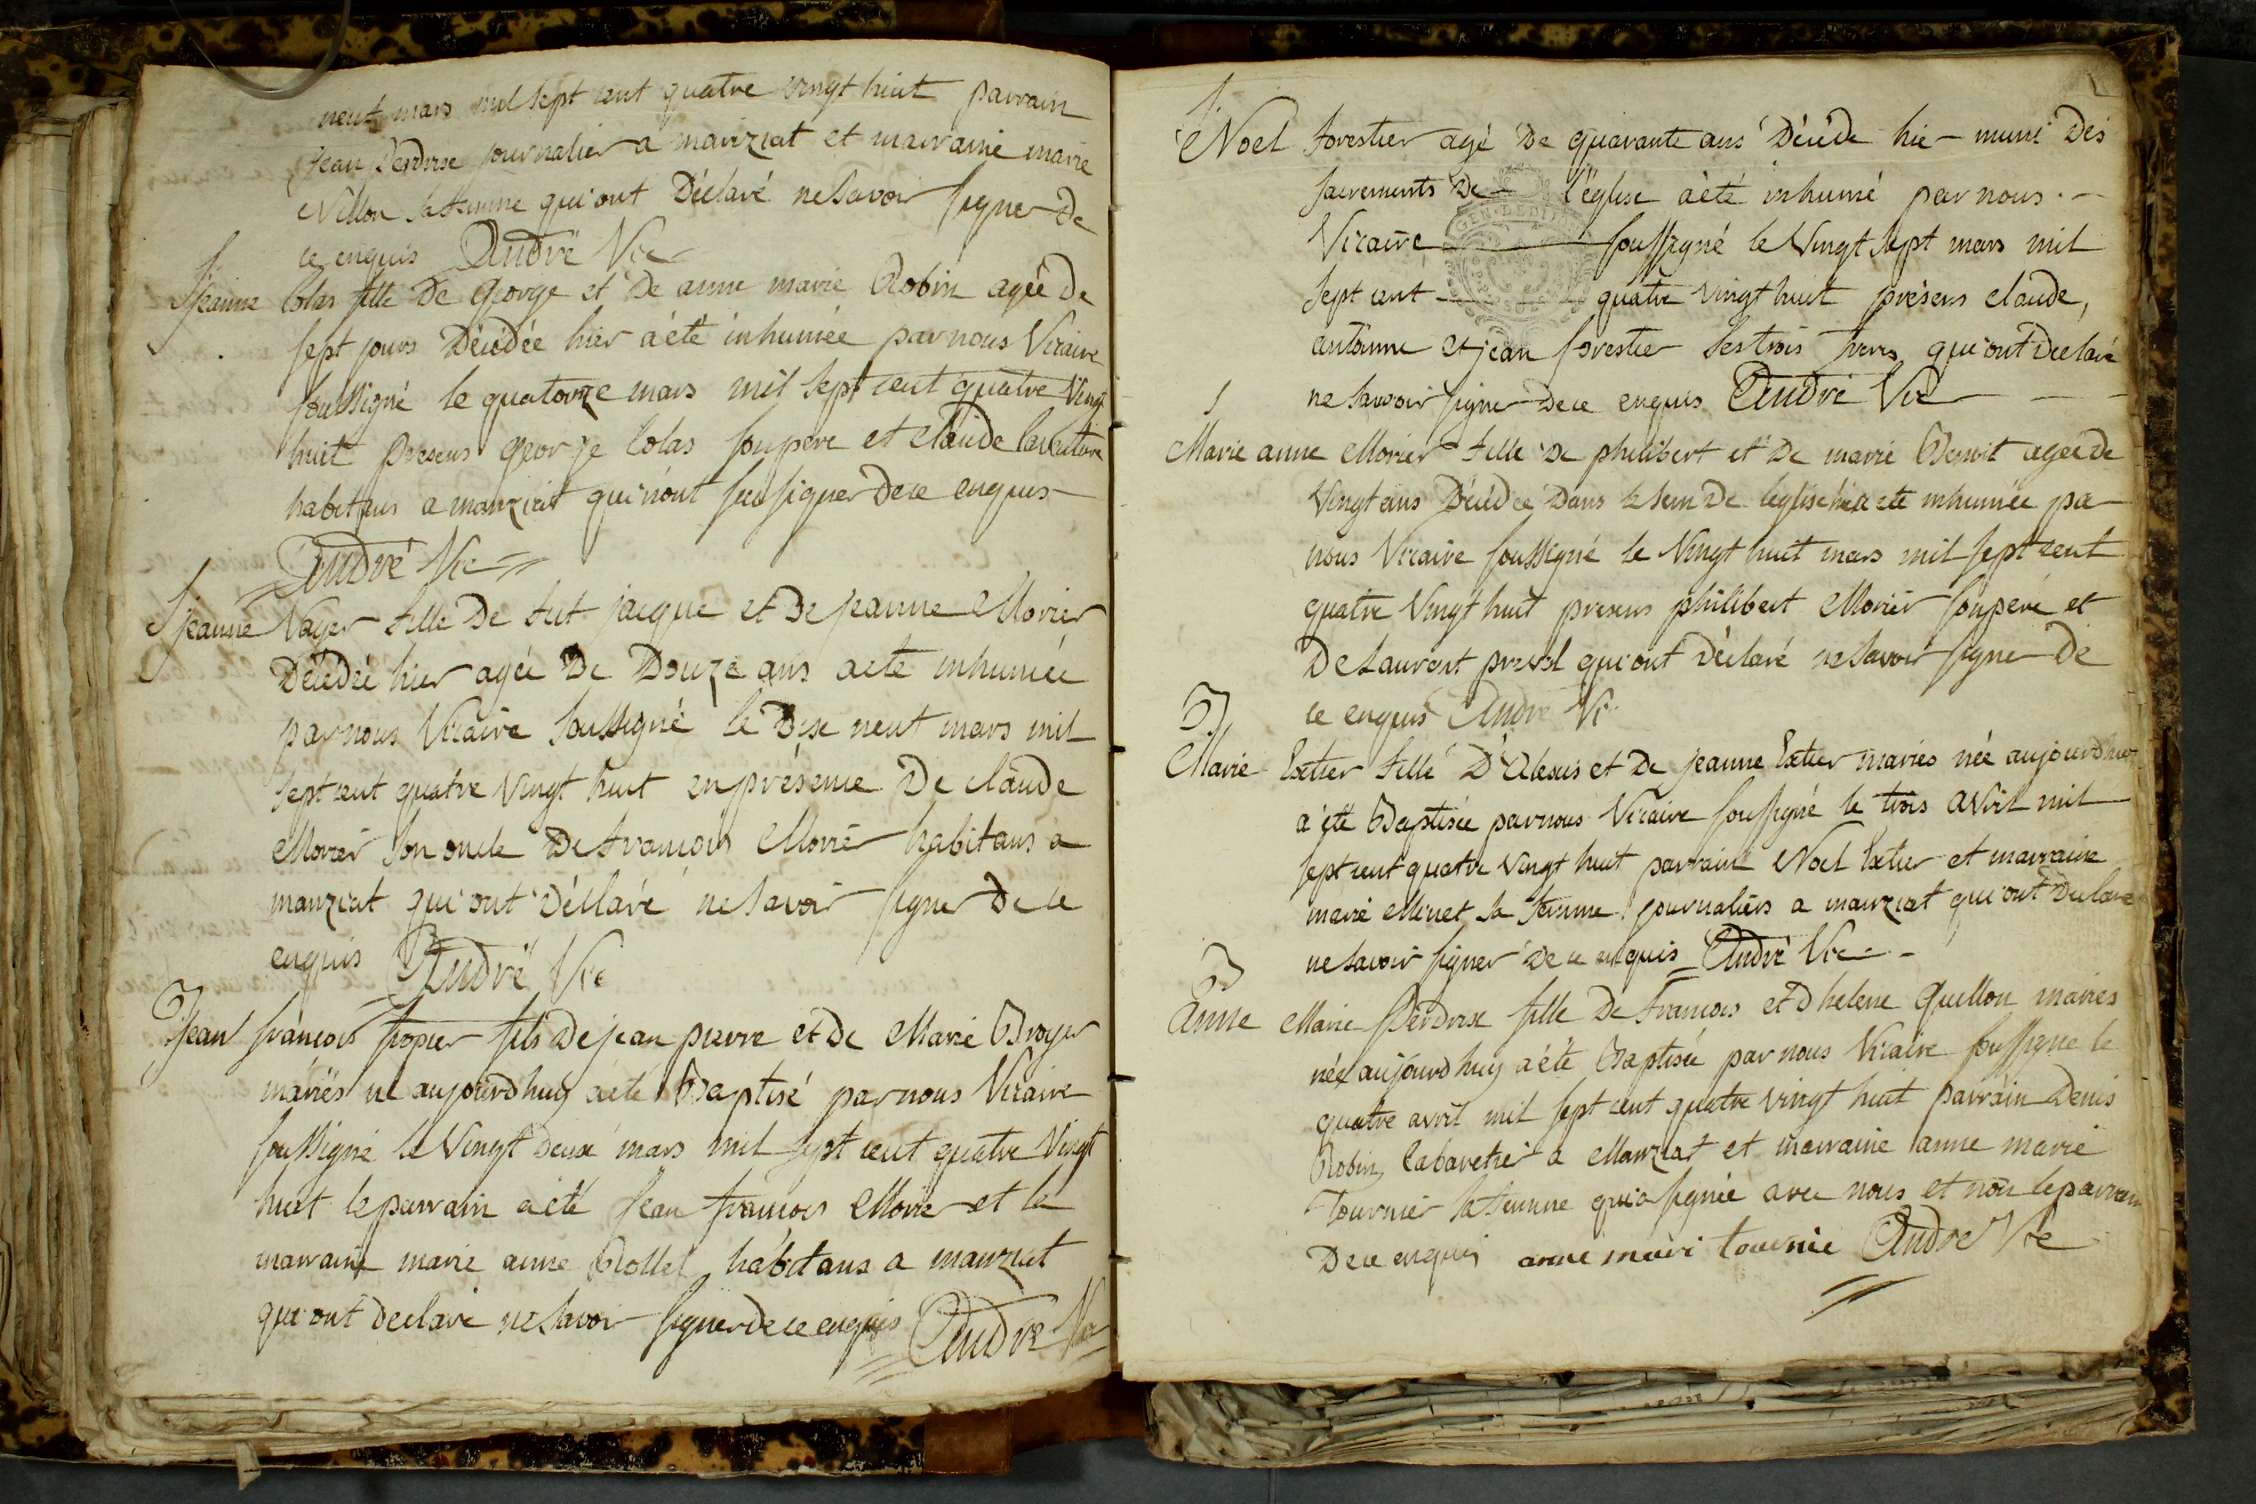 neuf mars mil sept cent quatre vingt huit parrain
Jean Perdrix journalier a manziat et marraine marie
Villon sa femme qui ont Déclaré ne savoir signer de
ce enquis André Vic
Jeanne Colas fille De George et De anne marie Robin agée De
sept jours Décédée hier a été inhumée par nous Vicaire
soussigné le quatorze mars mil sept cent quatre vingt
huit présens george Colas son pere et claude
habitans a manziat qui n'ont scu signer de ce enquis
André Vic
Jeanne Vayer fille De fut jacque et De jeanne Morier
Décédée hier agée De Douze ans a eté inhumée
par nous Vicaire soussigné le Dix neuf mars mil
sept cent quatre vingt huit en présence De claude
Morier son oncle De francois Morier habitans a
manziat qui ont Déclaré ne savoir signer De ce
enquis André Vic
Jean françois fropier fils De jean pierre et De Marie Broyer
mariés né aujourdhuy a eté Baptisé par nous Vicaire
soussigné le Vingt deux mars mil sept cent quatre vingt
huit le parrain a eté Jean francois Morier et la
marraine marie anne Rollet habitans a manziat
qui ont declaré ne savoir signer de ce enquis André Vic
Noel forestier agé De quarante ans Décédé hier muni Des
sacrements De l'église a été inhumé par nous
Vicaire soussigné le Vingt sept mars mil
sept cent quatre vingt huit présens claude,
antoinne et jean forestier ses trois freres qui ont declaré
ne savoir signer de ce enquis André Vic
Marie anne Morier fille De philibert et De marie Benoit agée De
Vingt ans Décédée Dans le sein De l'eglise hier a eté inhumée par
nous Vicaire soussigné le Vingt huit mars mil sept cent
quatre Vingt huit présens philibert Morier son pere et
De Laurent qui ont Déclaré ne savoir signer De
ce enquis André Vic
Marie fille D'Alexis et De jeanne mariés née aujourdhuy
a été Baptisée par nous Vicaire soussigné le trois avril mil
sept cent quatre vingt huit parrain Noel et marraine
marie Minet sa femme journaliers a manziat qui ont Declaré
ne savoir signer De ce enquis André Vic
Anne Marie Perdrix fille De francois et d'helene Guillon mariés
née aujourdhuy a été Baptisée par nous Vicaire soussigné le
quatre avril mil sept cent quatre vingt huit parrain Denis
Robin Cabaretier a Manziat et marraine anne marie
Tournier sa femme qui a signée avec nous et non le parrain
De ce enquis anne marie tournie André Vic